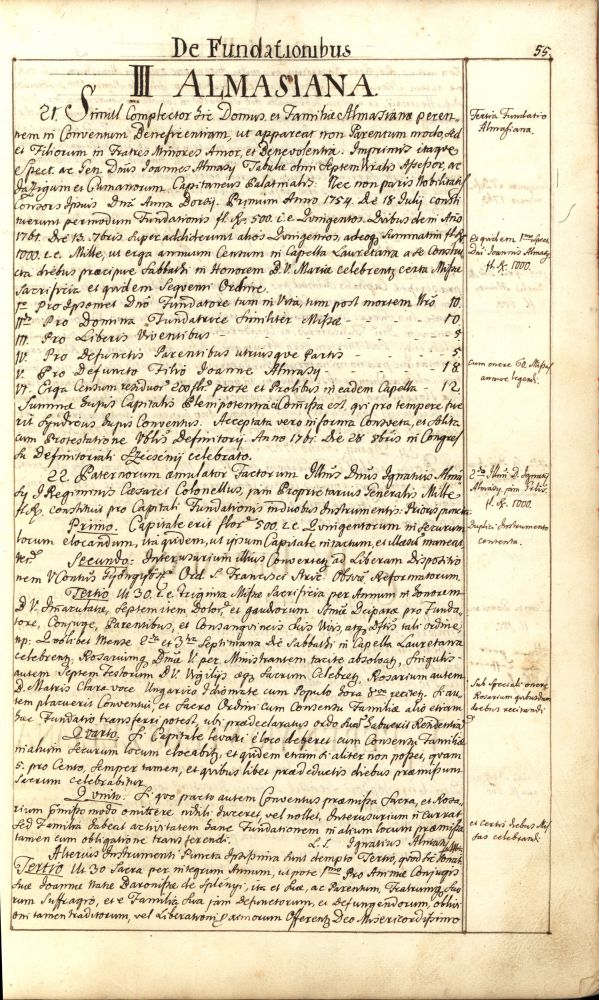 De Fundationibus
55.
III ALMASIANA.
21. Simul Complector hic Domus, et Familiæ Almasianæ peren-
nem in Conventum Beneficentiam, ut appareat non Parentum modo, sed
et Filiorum in Fratres Minores Amor, et Benevolentia. Imprimis itaque
Spect. ac Gen. Dnus Joannes Almasy Tabulæ olim Septemviralis Assessor, ac
Jazigum et Cumanorum Capitaneus Palatinalis. Nec non paris Nobilitatis
Consors Ipsius Dna Anna Primum Anno 1754. Die 18 Julij consti
tuerunt per modum Fundationis fl. R. 500. i.e. Quingentos. Quibus dein Año
1761. Die 13. 7bris Superaddiderunt alios Quingentos, adeoq. Summatim fl. R.
1000. i.e. Mille, ut erga annuum Censum in Capella Lauretana a se Constru
cta diebus præcipue Sabbathi in Honorem B.V. Mariæ celebrentur certa Missæ
Sacrificia et quidem Sequenti Ordine.
I. Pro Ipsomet Dno Fundatore tum in Vita, tum post mortem 10.
II. Pro Domina Fundatrice Similiter Missæ - - - 10
III. Pro Liberis Viventibus - - - 5
IV. Pro Defunctis Parentibus utriusque Partis - - 5
V. Pro Defuncto Filio Joanne Almasy - - - 18
VI. Erga Censum pro se et Prolibus in eadem Capella - 12,
Summæ hujus Capitalis Plenipotentia Comissa est, qui pro tempore fue
rit Syndicus hujus Conventus. Acceptata vero in forma Consveta, et Solita
cum Protestatione Vblis Definitorij Anno 1761. Die 28 8bris in Congres
su Definitoriali Szécsénij celebrato.
22. Paternorum æmulator Factorum Illmus Dnus Ignatius Almá
sy I Regiminis Cæsarei Colonellus, jam Proprietarius Generalis Mille
fl. R. constituit pro Capitali Fundationis in duobus Instrumentis: Prioris puncta
Primo. Capitale erit flor. 500. i.e. Quingentorum in Securum
locum elocandum, ita quidem, ut ipsum Capitale intactum, et illæsum maneat.
Secundo: Interusurium illius Convertetur ad Liberam Dispositio
nem V. Contus Gyöngyös. Ord. S. Francisci Strict. Observ. Reformatorum.
Tertio Ut 30. i.e. Triginta Missæ Sacrificia per Annum in honorem
B.V. Immaculatæ, Septem item Dolor. et gaudiorum Deiparæ pro Funda-
tore, Conjuge, Parentibus, et Consangvineis Suis Vivis, atq. Dftis tali ordine,
np: Quolibet Mense 2da et 3tia Septimana Die Sabbathi in Capella Lauretana
celebrentur, Rosariumq. per Ministrantem tacite absolvatur, Singulis
autem Septem Festorum B.V. Vigilijs æque Sacrum Celebretur, Rosarium autem
B. Matris Clara voce Ungarico Idiomate cum Populo hora 8va recitetur. Si au-
tem placuerit Conventui, et Sacro Ordini cum Consensu Familiæ alio etiam
hæc Fundatio transferri potest, ubi prædeclaratus ordo habuerit
Quarto. Si Capitale levari e loco deberet cum Consensu Familiæ
in alium Securum locum elocabitur, et quidem etiam si aliter non posset, quam
5. pro Cento, Semper tamen, et quibus libet prædeductis diebus præmissum
Sacrum celebrabitur.
Quinto. Si quo pacto autem Conventus præmissa Sacra, et Rosa-
rium pmisso modo omittere nihili duceret, vel nollet, Interusurium
Sed Familia habeat activitatem hanc Fundationem in alium locum præmissa
tamen cum obligatione transferendi. L.S. Ignatius Almásy
Alterius Instrumenti Puncta ipsissima sunt dempto Tertio, quod sic sonat.
Tertio Ut 30 Sacra per integrum Annum, utpote pro Animæ Conjugis
Suæ Joannæ Natæ Baronissæ de Splenyi, ita et Suæ, ac Parentum, Fratrumq. Suo
rum Suffragio, et e Familia Sua jam defunctorum, et defungendorum, oblivi
oni tamen traditorum, vel Liberationi Offerentur Deo Misericordissimo
Tertia Fundatio
Almasiana.
et quidem Spect.
Dni Joannis Almasy
fl. R. 1000.
cum onere 60. Missas
annue legendi.
2do Illmi D. Ignatij
Almásy, jam
fl. R. 1000.
Duplici Instrumento
contenta.
Sub speciali onere
Rosarium quibusdam
diebus recitandi
et certis diebus Mis
sas celebrandi.